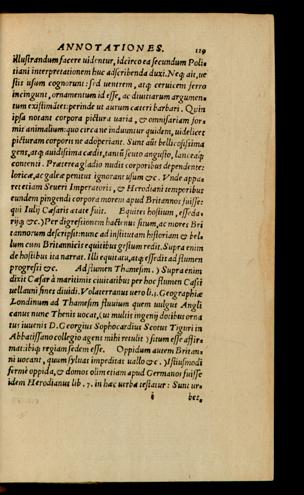 ANNOTATIONES. 119
illustrandum facere uidentur, idcirco ea secundum Poli
tiani interpretationem huc adscribenda duxi. Neq; ait, ue
stis usum cognorunt: sed uentrem, atq; ceruicem ferro
incingunt, ornamentum id esse, ac diuitiarum argumen
tum existimātes: perinde ut aurum cæteri barbari. Quin
ipsa notant corpora pictura uaria, & omnifariam for
mis animalium: quo circa ne induuntur quidem, uidelicet
picturam corporis ne adoperiant. Sunt aūt bellicosissima
gens, atq; auidissima cædis, tantū scuto angusto, lanceaq;
contenti. Præterea gladio nudis corporibus dependente:
loricæ, ac galeæ penitus ignorant usum &c. Vnde appa
ret etiam Seueri Imperatoris, & Herodiani temporibus
eundem pingendi corpora morem apud Britannos fuisse:
qui Iulij Cæsaris ætate fuit. Equites hostium, esseda-
rijq; &c.) Per digressionem hactenus situm, ac mores Bri
tannorum descripsit: nunc ad institutam historiam & bel
lum cum Britannicis equitibus gestum redit. Supra enim
de hostibus ita narrat. Illi equitatu, atq; essedis ad flumen
progressi &c. Ad flumen Thamesim.) Supra enim
dixit Cæsar à maritimis ciuitatibus per hoc flumen Cassi
uellauni fines diuidi. Volaterranus uero li. 3. Geographiæ
Londinum ad Thamesim fluuium quem uulgus Angli
canus nunc Thenis uocat, (ut multis ingenij dotibus orna
tus iuuenis D. Georgius Sophocardius Scotus Tiguri in
Abbatissano collegio agens mihi retulit) situm esse affir
mat: ibiq; regiam sedem esse. Oppidum autem Britan
ni uocant, quum syluas impeditas uallo &c.) Istiusmodi
fermè oppida, & domos olim etiam apud Germanos fuisse
idem Herodianus lib. 7. in hæc uerba testatur: Sunt ur-
i bes,